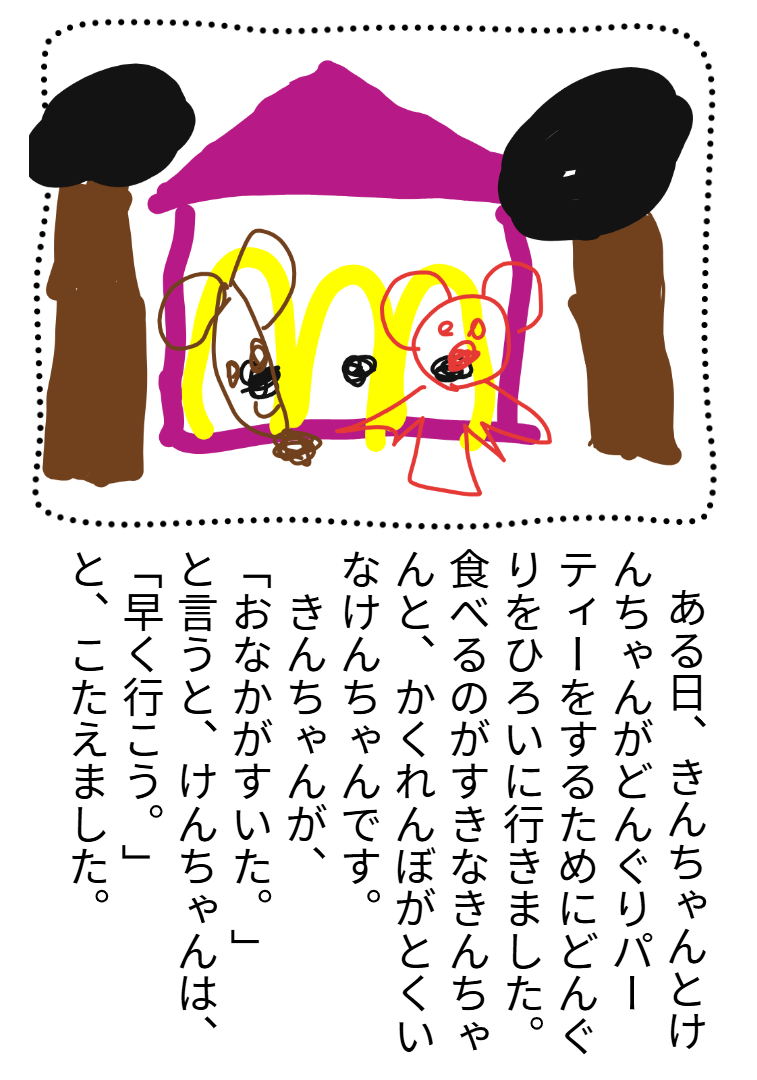 ある日、きんちゃんとけ
んちゃんがどんぐりパー
ティーをするためにどんぐ
りをひろいに行きました。
食べるのがすきなきんちゃ
んと、かくれんぼがとくい
なけんちゃんです。
きんちゃんが、
「おなかがすいた。」
と言うと、けんちゃんは、
「早く行こう。」
と、こたえました。